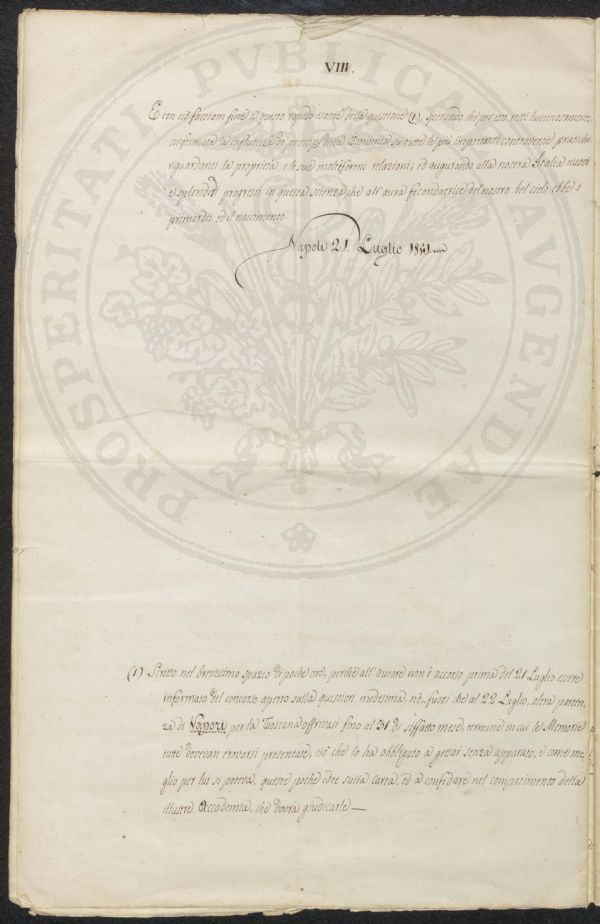 VIII.
E con ciò facciam fine a questo rapido esame della questione (1), sperando che per esso resti luminosamente
confermata la influenza de' principj della Economia su tutte le più importanti controversie pratiche
riguardanti la proprietà e le sue moltiformi relazioni; ed augurando alla nostra Italia nuovi
e splendidi progressi in questa scienza che all'aura fecondatrice del nostro bel cielo ebbe i
primordii ed il nascimento
Napoli 21. Luglio 1841
(1) Scritto nel brevissimo spazio di poche ore, perchè all'autore non è occorso prima del 21 Luglio essere
informato del concorso aperto sulla question medesima, nè fuori che al 22 Luglio, altra parten-
za di Vapore per la Toscana offrivasi fino al 31 di siffatto mese, termine in cui le Memorie
tutte dovevan trovarsi presentate, ciò che lo ha obbligato a gettar senza apparato, e come me-
glio per lui si poteva, queste poche idee sulla carta, ed a confidare nel compatimento della
illustre Accademia, che dovrà giudicarle—
PROSPERITATI PUBLICAE AUGENDAE